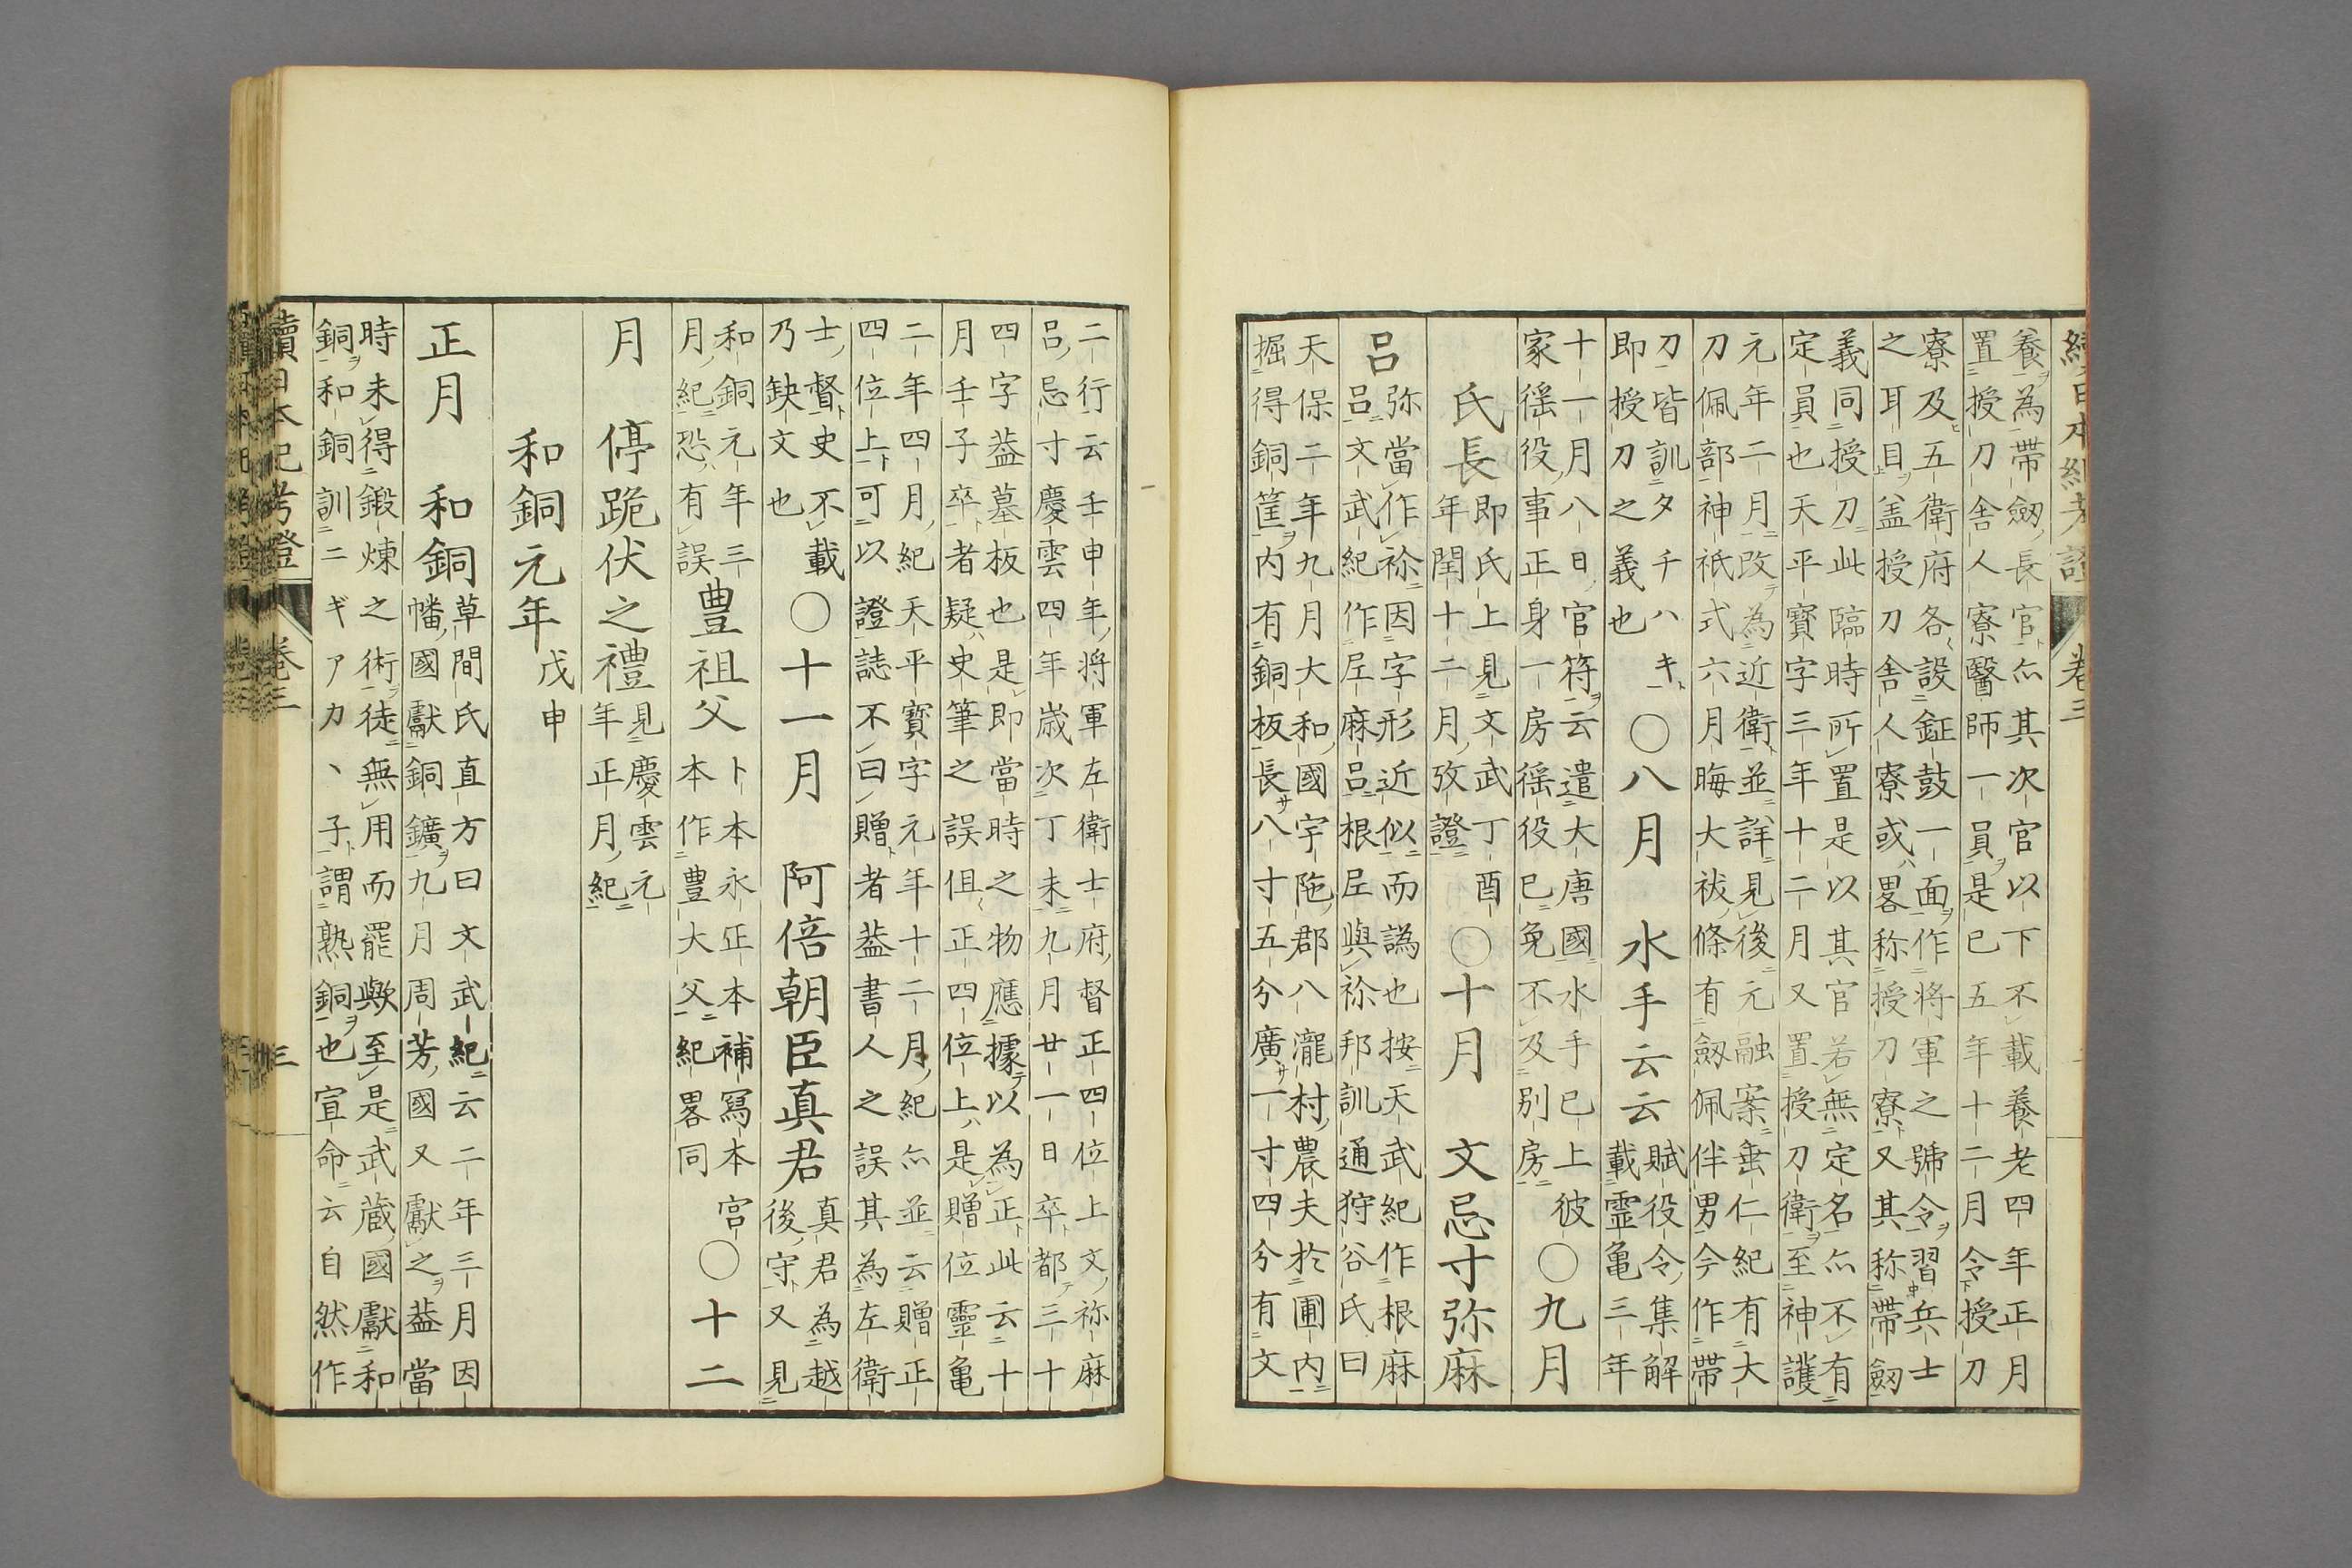 續日本紀考證 卷三
養為帶劔長官亦其次官以下不載養老四年正月
置授刀舍人寮醫師一員是已五年十二月令授刀
寮及五衛府各設鉦鼓一面作将軍之號令習兵士
之耳目盖授刀舍人寮或畧称授刀寮又其称帶劔
義同授刀此臨時所置是以其官若無定名亦不有
定員也天平寳字三年十二月又置授刀衛至神護
元年二月改為近衛並詳見後元融案垂仁紀有大
刀佩部神祇式六月晦大祓條有劔佩伴男今作帶
刀皆訓タチハキ
即授刀之義也
〇八月 水手云云
賦役令集解
載霊亀三年
十一月八日官符云遣大唐國水手已上彼
家徭役事正身一房徭役已免不及別房
〇九月
氏長
即氏上見文武丁酉
年閏十二月攷證
〇十月 文忌寸弥麻
呂
弥當作祢因字形近似而譌也按天武紀作根麻
呂文武紀作尼麻呂根尼與祢邦訓通狩谷氏曰
天保二年九月大和國宇陁郡八瀧村農夫於圃内
掘得銅筐内有銅板長八寸五分廣一寸四分有文
二行云壬申年将軍左衛士府督正四位上文祢麻
呂忌寸慶雲四年歳次丁未九月廿一日卒都三十
四字葢墓板也是即當時之物應據以為正此云十
月壬子卒者疑史筆之誤但正四位上是贈位靈亀
二年四月紀天平寳字元年十二月紀亦並云贈正
四位上可以證誌不曰贈者葢書人之誤其為左衛
士督史不載
乃缺文也
〇十一月 阿倍朝臣真君
真君為越
後守又見
和銅元年三
月紀恐有誤
豊祖父
卜本永正本補寫本宮
本作豊大父紀畧同
〇十二
月 停跪伏之禮
見慶雲元
年正月紀
和銅元年
戊申
正月 和銅
草間氏直方曰文武紀云二年三月因
幡國獻銅鑛九月周芳國又獻之葢當
時未得鍛煉之術徒無用而罷歟至是武藏國獻和
銅和銅訓ニギアカヽ子謂熟銅也宣命云自然作
續日本紀考證 卷三 三